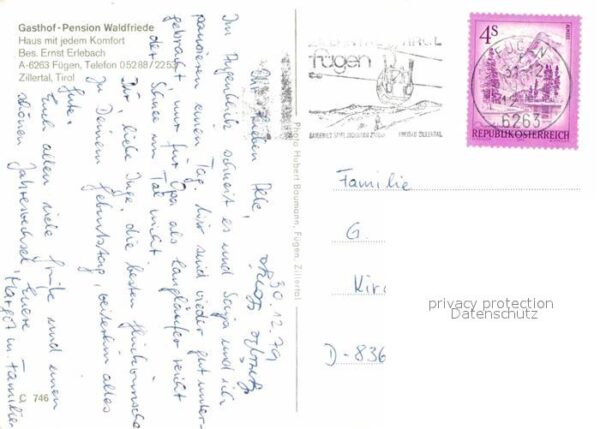 Gasthof-Pension Waldfriede
Haus mit jedem Komfort
Bes. Ernst Erlebach
A-6263 Fügen, Telefon 05288/2253
Zillertal, Tirol
30.12.79
Ihr Lieben Alle,
schneit es und Sonja und ich
einen Tag. Wir sind wieder gut unter-
gebracht, nur für Opa als Langläufer reicht
der Schnee im Tal nicht.
Dir, liebe Inge, die besten Glückwünsche
zu Deinem Geburtstag, weiterhin alles
Gute.
Euch allen viele Grüße und einen
schönen Jahreswechsel, Eure
Margot m. Familie
Q 746
Photo Hubert Baumann, Fügen, Zillertal
fügen
ZILLERTAL
4S
REPUBLIK ÖSTERREICH
FÜGEN
6263
Familie
G.
Kir
D-836
privacy protection
Datenschutz